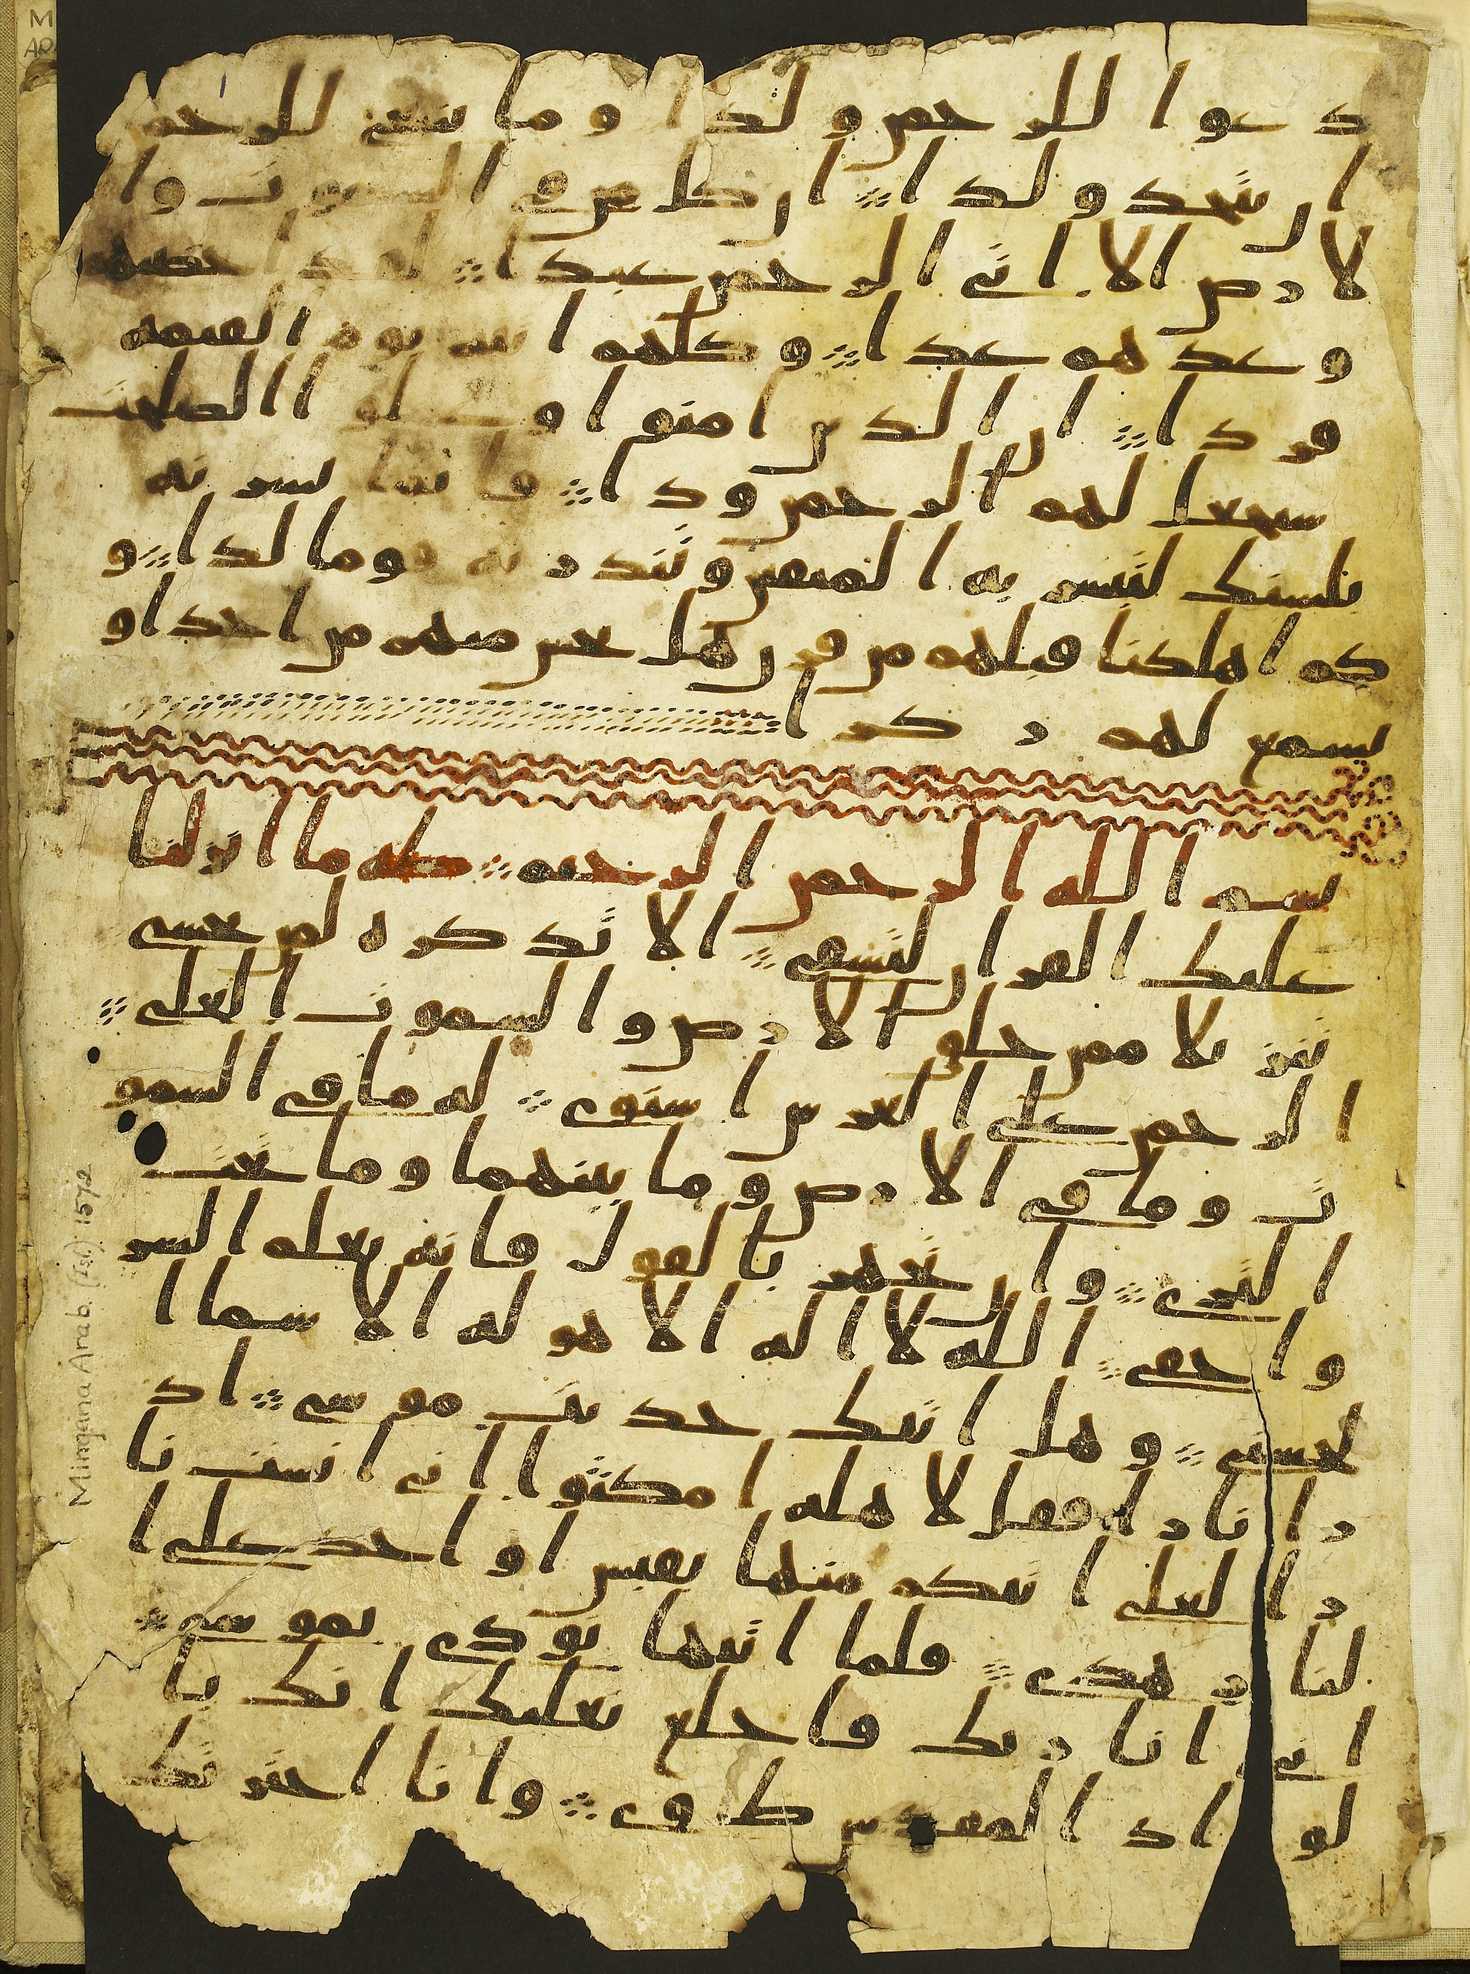 دعوا للرحمن ولدا وما ينبغي للرحمن
ان يتخذ ولدا ان كل من في السموت وا
لارض الا اتي الرحمن عبدا لقد احصيهم
وعدهم عدا وكلهم اتيه يوم القيمه
فردا ان الذين امنوا وعملوا الصلحت
سيجعل لهم الرحمن ودا فانما يسرنه
بلسنك لتبشر به المتقين وتنذر به قوما لدا و
كم اهلكنا قبلهم من قرن هل تحس منهم من احد او
تسمع لهم ركزا
بسم الله الرحمن الرحيم طه ما انزلنا
عليك القران لتشقى الا تذكره لمن يخشى
تنزيلا ممن خلق الارض والسموت العلى
الرحمن على العرش استوى له ما في السمو
ت وما في الارض وما بينهما وما تحت
الثرى وان تجهر بالقول فانه يعلم السر
واخفى الله لا اله الا هو له الاسما ا
لحسنى وهل اتيك حديث موسى اذ
را نارا فقل لاهله امكثوا اني انست نا
را لعلي اتيكم منها بقبس او اجد على ا
لنار هدى فلما اتيها نودي يموسى
اني انا ربك فاخلع نعليك انك با
لواد المقدس طوى وانا اخترتك
Mingana Arab. (Isl) 1572